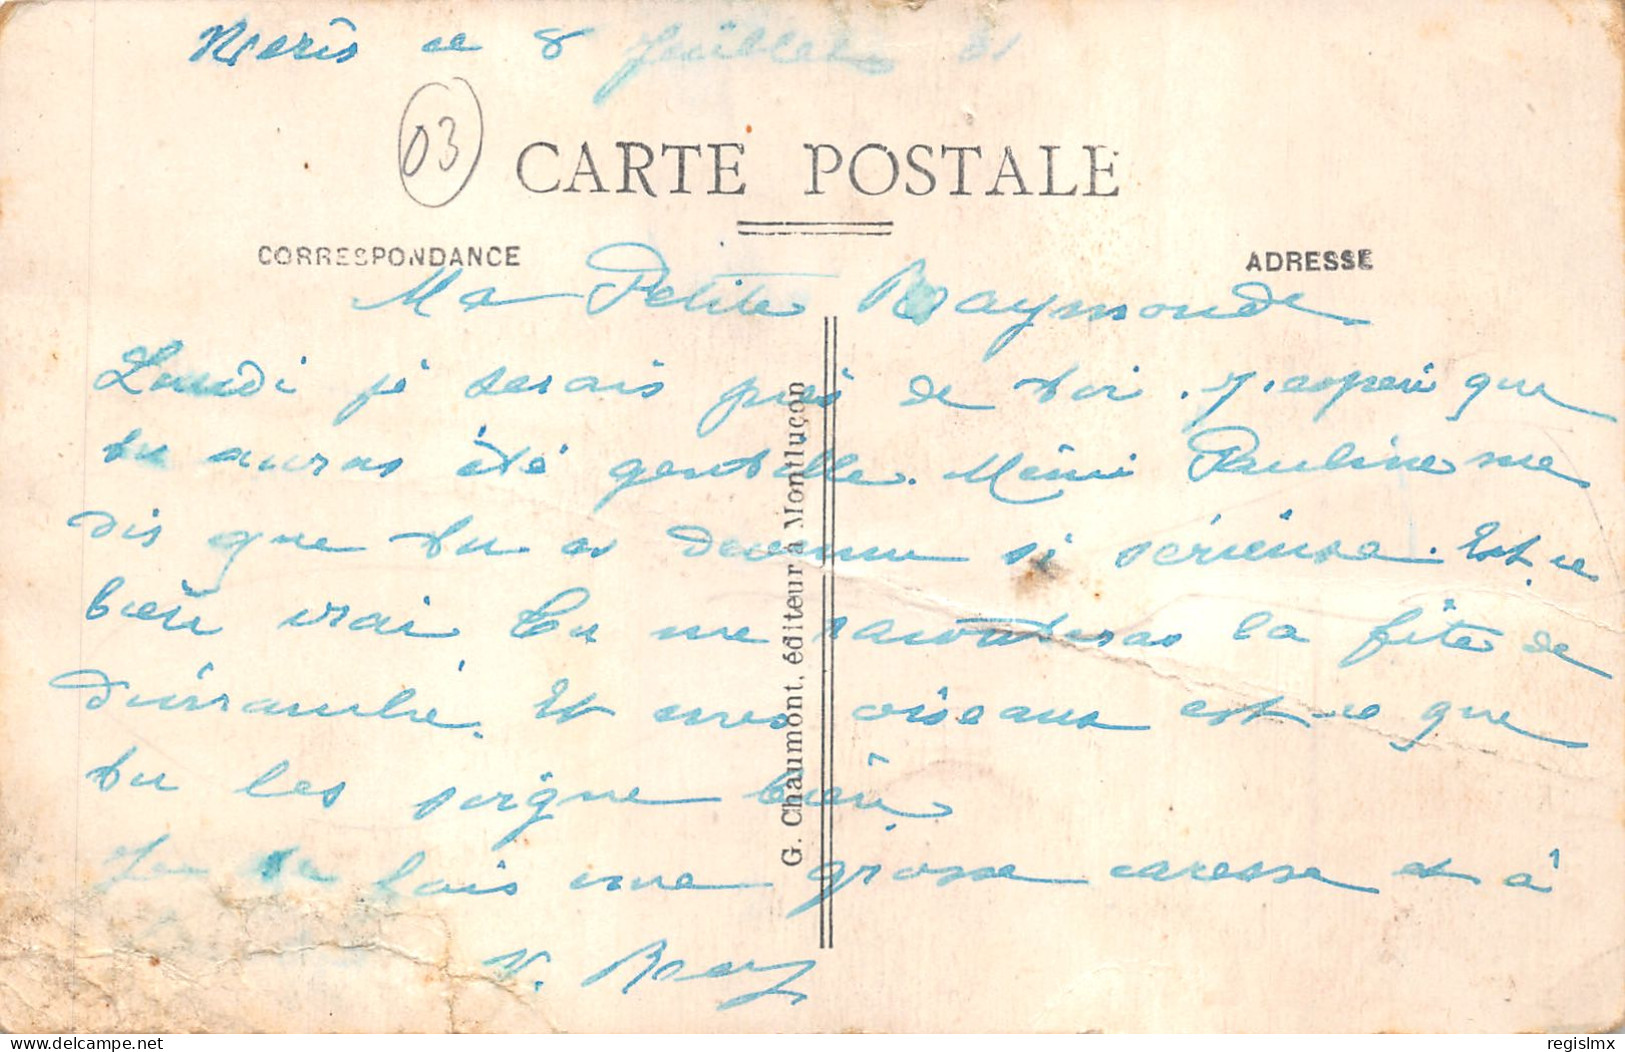 Néris ce 8 Juillet 31
03
CARTE POSTALE
CORRESPONDANCE
ADRESSE
Ma Petite Raymonde
Lundi je serais près de toi. J'espère que
tu auras été gentille. Mémé Pauline me
dis que tu es devenue si sérieuse. Est-ce
bien vrai Tu me raconteras la fête de
Et mes oiseaux est-ce que
tu les soigne bien.
Je te fais une grosse caresse et à
G. Chaumont, éditeur à Montluçon
delcampe.net
regislmx